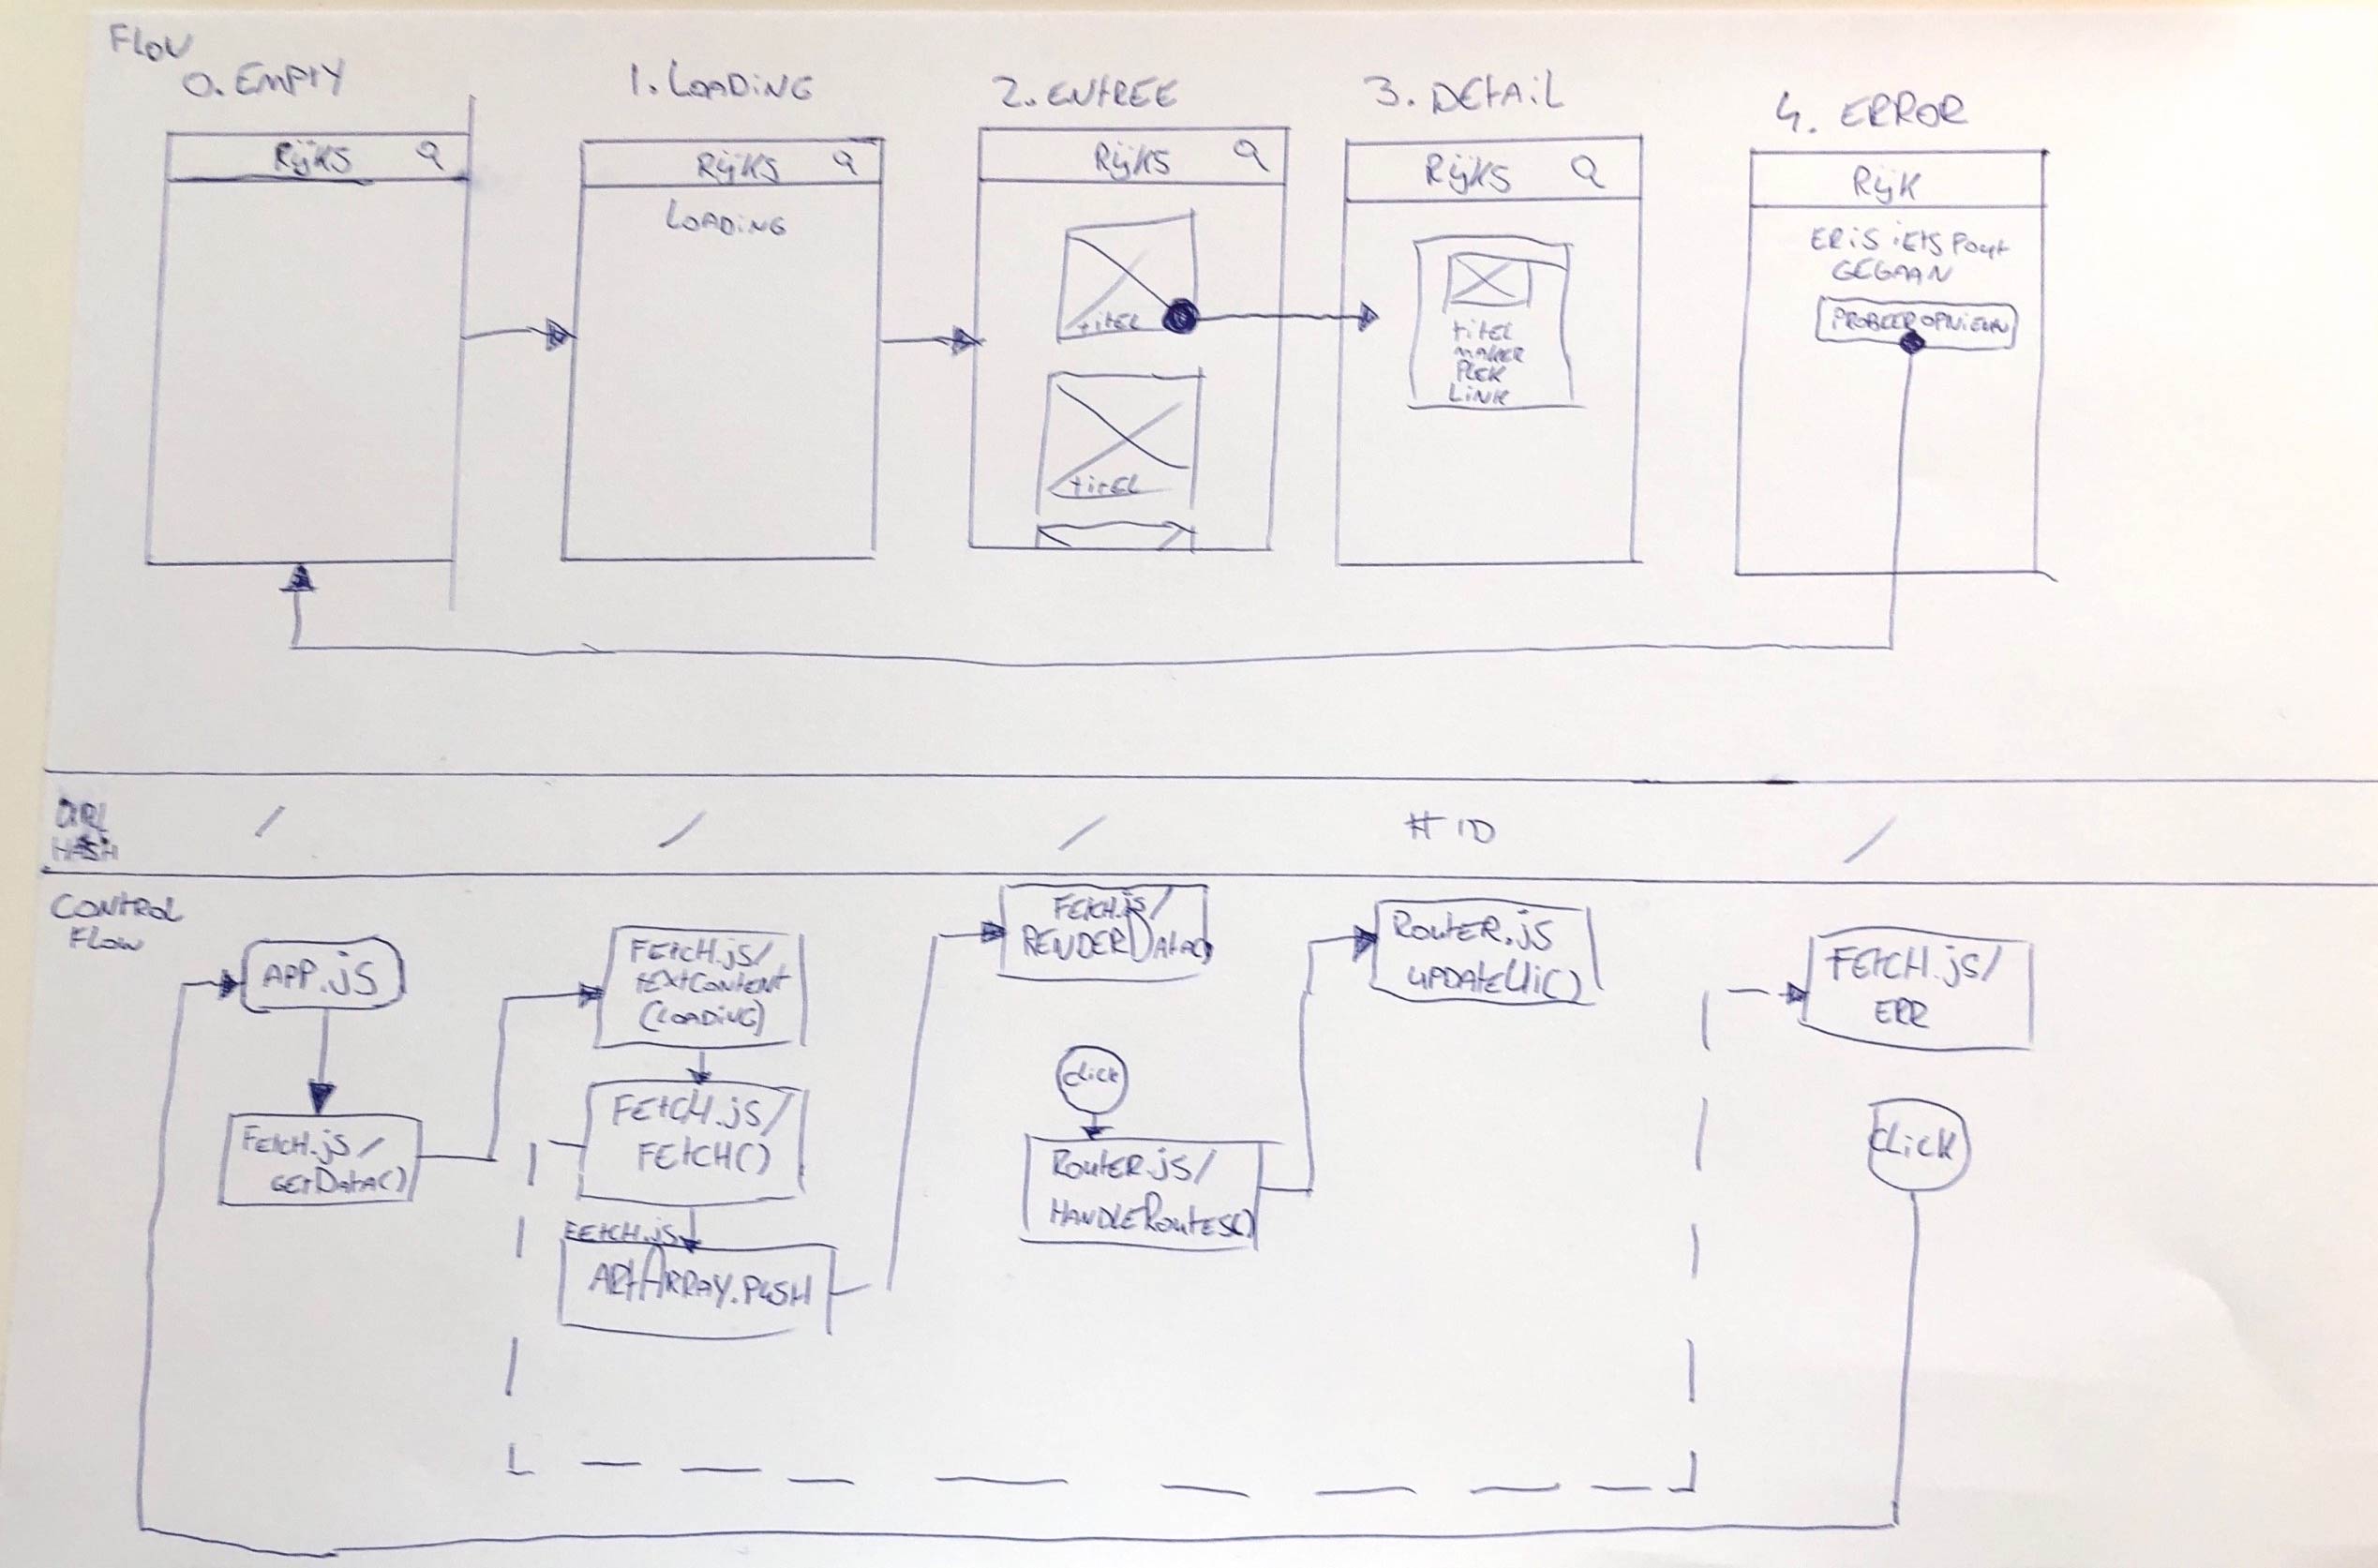 FLOW
0. EMPTY
1. LOADING
2. ENTREE
3. DETAIL
4. ERROR
RijKS
RijKS
RijKS
RijKS
RijK
LOADiNG
titEL
titEL
titEL
MAKER
PLEK
LiNK
ER iS iEtS Fout
GEGAAN
PROBEER OPNiEUW
URL
HASH
/
/
/
# ID
/
CONTROL
FLOW
APP.jS
FEtCH.jS/
GEtDAtA()
FEtCH.jS/
tEXtCONtENt
(LOADiNG)
FEtCH.jS/
FEtCH()
FEtCH.jS
ARtARRAY.PUSH
FEtCH.jS/
RENDERDAtA()
click
ROUtER.jS/
HANDLEROUtES()
ROUtER.jS
UPDAtEUi()
FEtCH.jS/
ERR
CLiCK